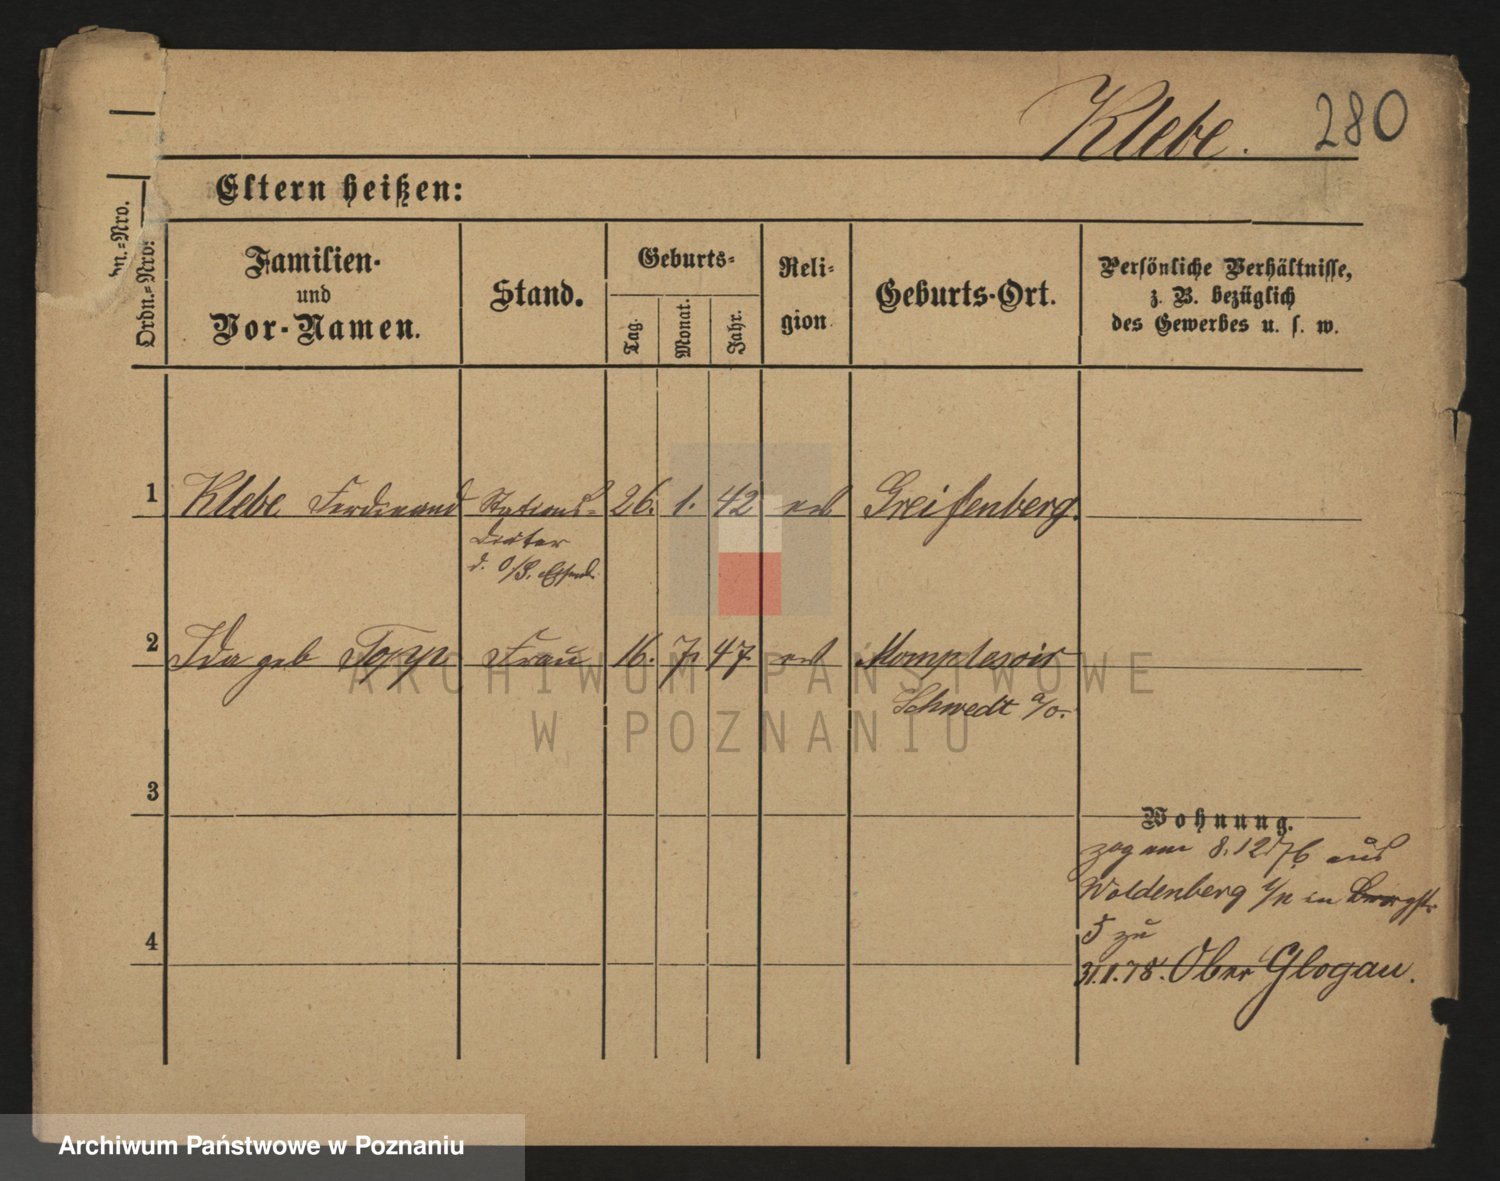 Klebe. 280
Eltern heißen:
Ordn.-Nro.
Ordn.-Nro.
Familien-
und
Vor-Namen.
Stand.
Geburts-
Tag.
Monat.
Jahr.
Reli-
gion
Geburts-Ort.
Persönliche Verhältnisse,
z. B. bezüglich
des Gewerbes u. s. w.
1 Klebe Ferdinand Stations- 26. 1. 42 ev Greifenberg.
Diätar
d. O/S.
2 Ida geb Topp Frau 16. 7. 47 ev
Schwedt a/O.
3
Wohnung.
zog am 8.12.76 aus
Woldenberg i/N in
5 zu
4
31.1.78. Ober Glogau.
ARCHIWUM PAŃSTWOWE
W POZNANIU
Archiwum Państwowe w Poznaniu